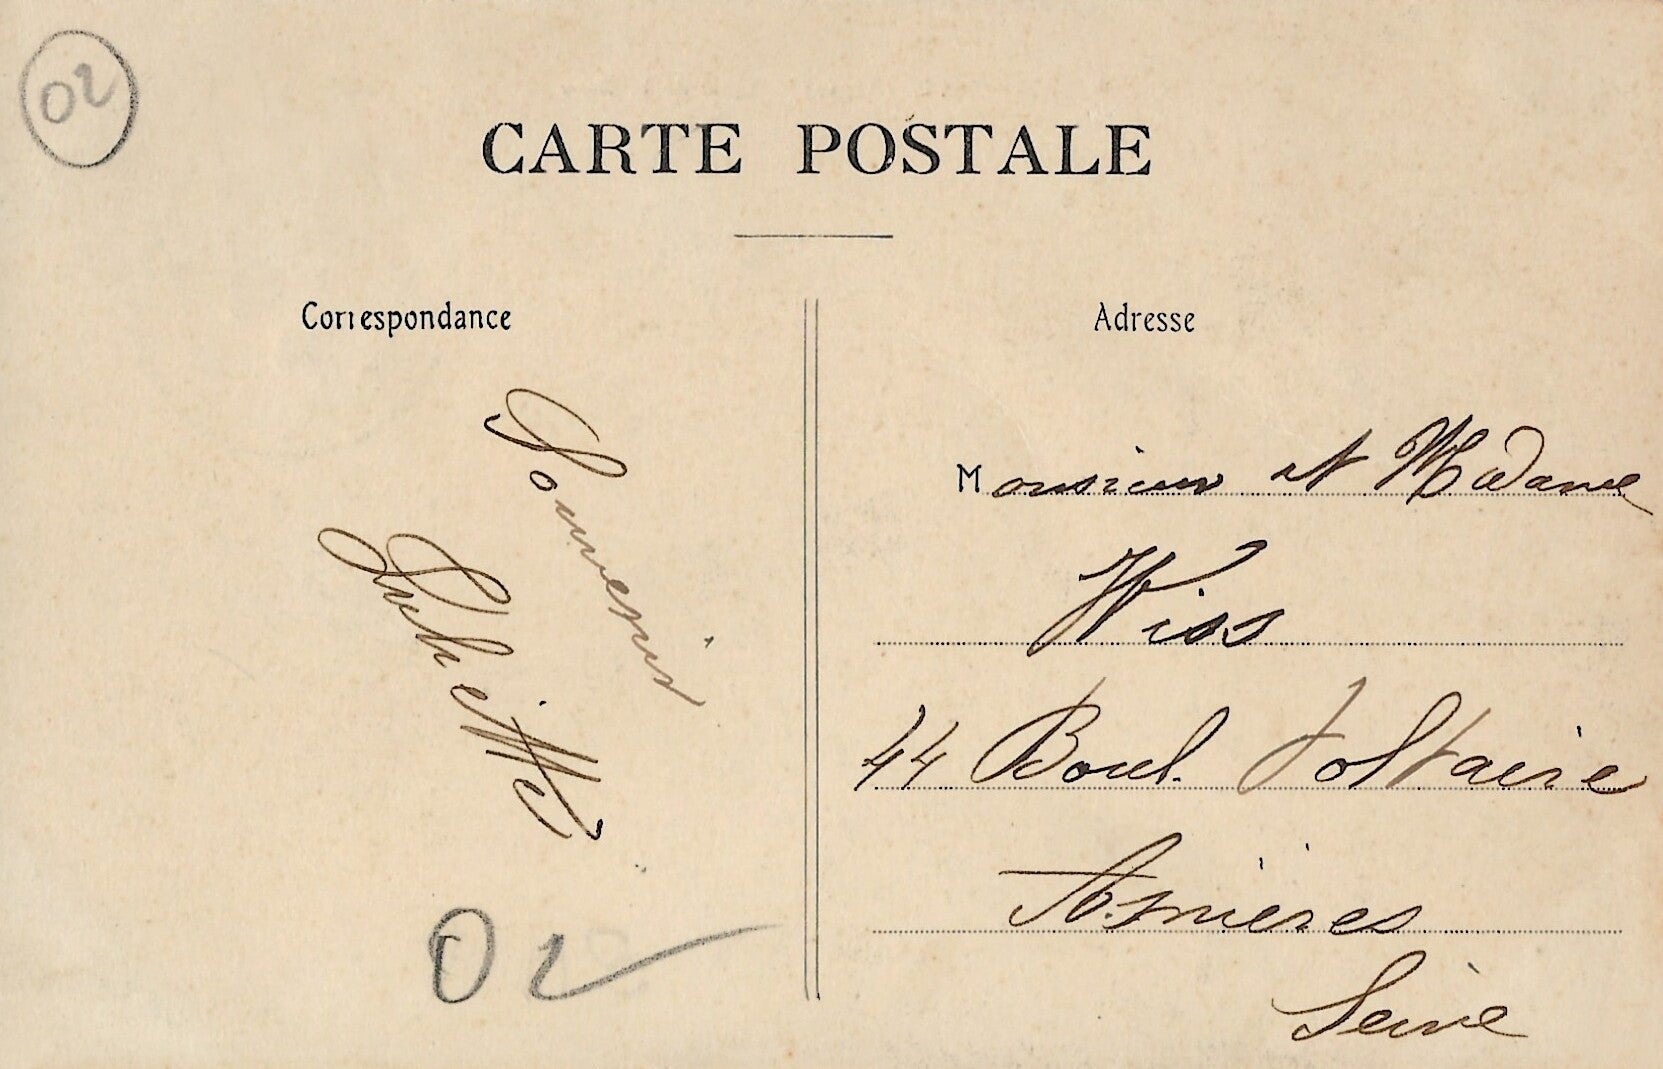 02
CARTE POSTALE
Correspondance
Adresse
Souvenir
02
Monsieur et Madame
Wiss
44 Boul. Voltaire
Asnières
Seine